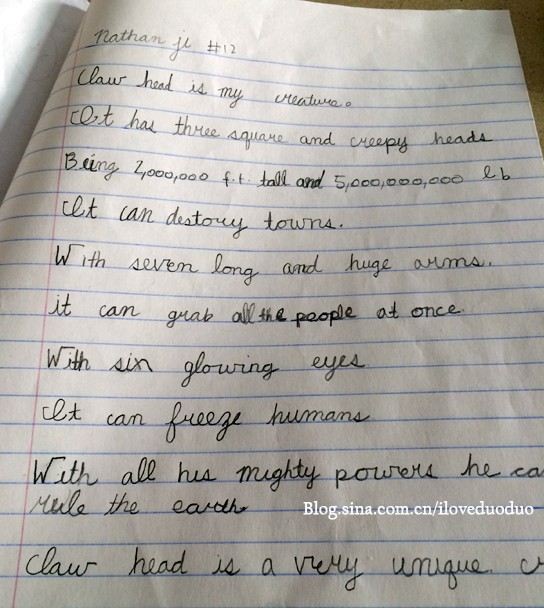 Nathan ji #12
Claw head is my creature.
It has three square and creepy heads
Being 2,000,000 f.t. tall and 5,000,000,000 lb
It can destory towns.
With seven long and huge arms.
it can grab all the people at once
With six glowing eyes
It can freeze humans
With all his mighty powers he ca
rule the earth
Blog.sina.com.cn/iloveduoduo
Claw head is a very unique. cr